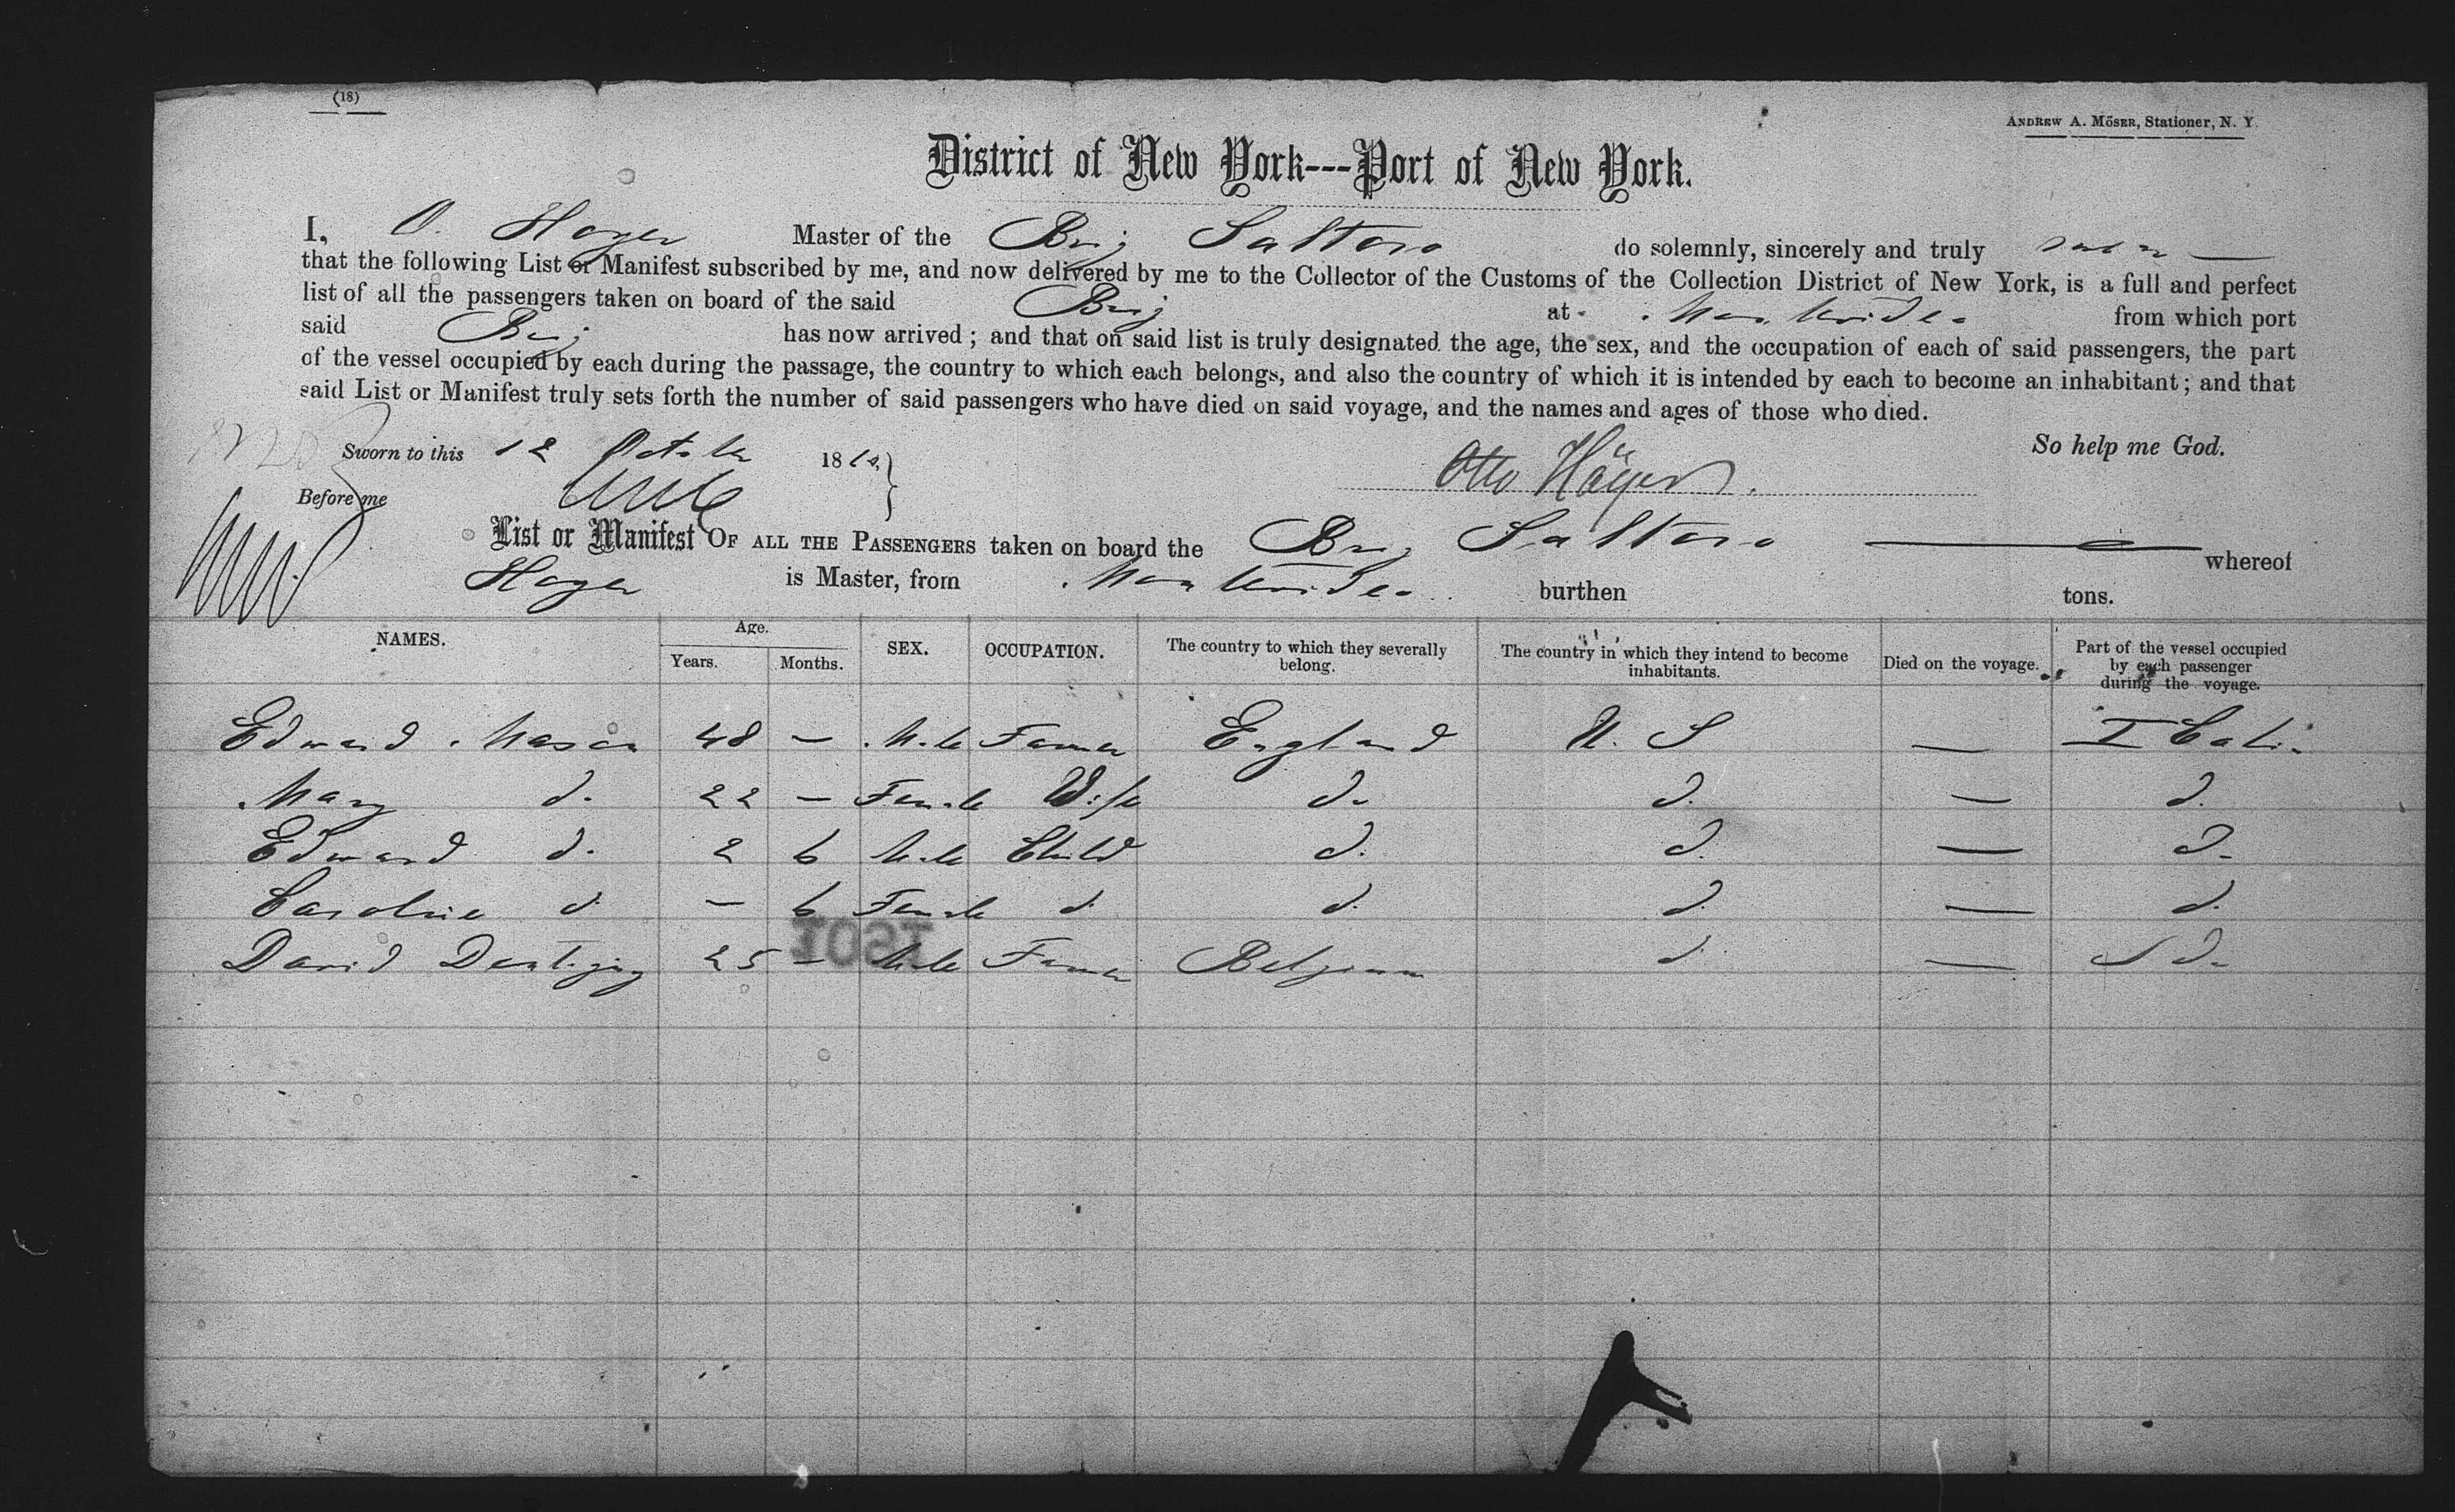 (18)
ANDREW A. MÖSER, Stationer, N. Y.
District of New York---Port of New York.
I, O. Hoyer Master of the Brig Saltoro do solemnly, sincerely and truly
that the following List or Manifest subscribed by me, and now delivered by me to the Collector of the Customs of the Collection District of New York, is a full and perfect
list of all the passengers taken on board of the said Brig at Montevideo from which port
said Brig has now arrived; and that on said list is truly designated the age, the sex, and the occupation of each of said passengers, the part
of the vessel occupied by each during the passage, the country to which each belongs, and also the country of which it is intended by each to become an inhabitant; and that
said List or Manifest truly sets forth the number of said passengers who have died on said voyage, and the names and ages of those who died.
So help me God.
Sworn to this 12 October 18
Before me
Otto Höyer
List or Manifest OF ALL THE PASSENGERS taken on board the Brig Saltoro whereof
Hoyer is Master, from Montevideo burthen tons.
NAMES. Age. Years. Months. SEX. OCCUPATION. The country to which they severally belong. The country in which they intend to become inhabitants. Died on the voyage. Part of the vessel occupied by each passenger during the voyage.
Edward Mason 48 — Male Farmer England U. S — I Cabin
Mary do 22 — Female Wife do do — do
Edward do 2 6 Male Child do do — do
Caroline do — 6 Female do do do — do
David 25 — Male Farmer Belgium do — do